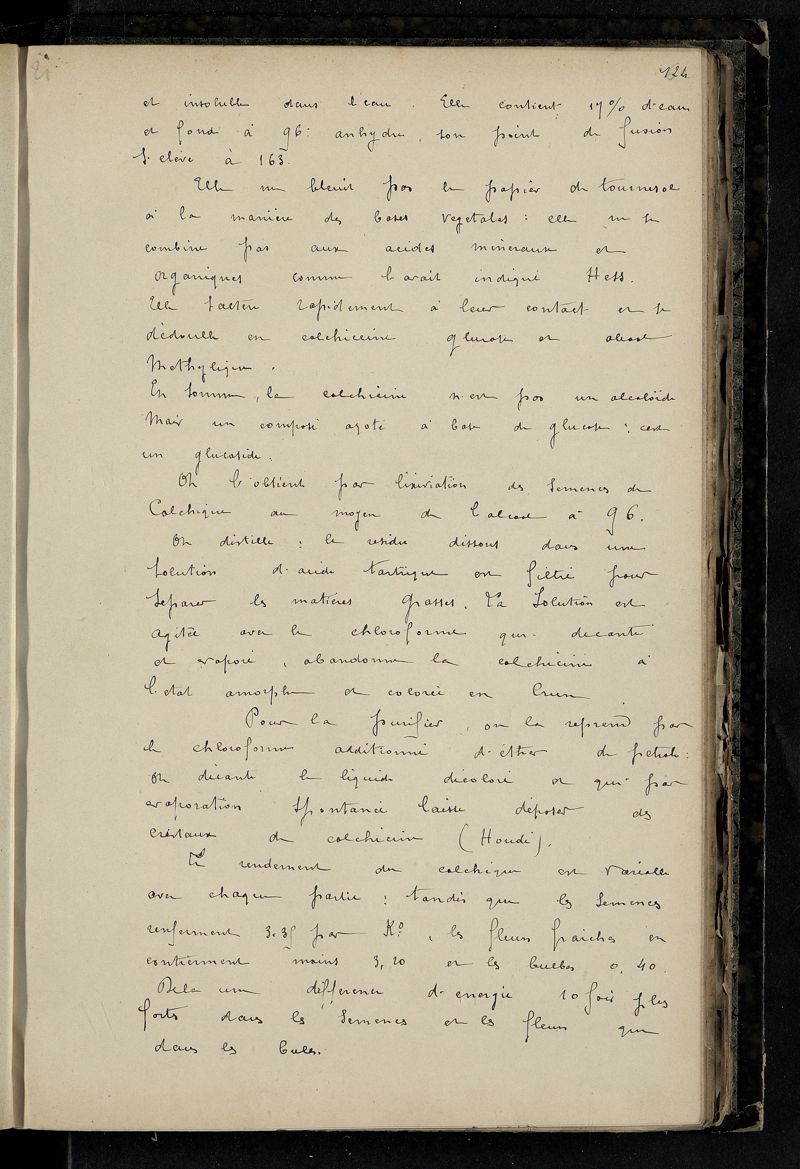 124
et insoluble dans l'eau. Elle contient 17% d'eau
et fond à 96° anhydre, son point de fusion
s'élève à 163.
Elle ne bleuit pas le papier de tournesol
à la manière des bases végétales : elle ne se
combine pas aux acides minéraux et
organiques comme l'avait indiqué Hess.
Elle s'altère rapidement à leur contact et se
dédouble en colchicéine glucose et alcool
Méthylique.
En somme, la colchicine n'est pas un alcaloïde
Mais un composé azoté à base de glucose : c'est
un glucoside.
On l'obtient par lixiviation des semences de
Colchique au moyen de l'alcool à 96.
On distille : le résidu dissout dans une
solution d'acide tartrique est filtré pour
séparer les matières grasses. La Solution est
agitée avec le chloroforme qui décanté
et évaporé, abandonne la colchicine à
l'état amorphe et colorée en brun
Pour la purifier, on la reprend par
le chloroforme additionné d'éther de pétrole :
On décante le liquide décoloré et qui par
évaporation spontanée laisse déposer des
cristaux de colchicine (Houdé).
Le rendement du colchique est variable
avec chaque partie : tandis que les semences
renferment par K°, les fleurs fraiches en
contiennent moins 3,20 et les bulbes 0,40.
De la une différence d'énergie 10 fois plus
forte dans les semences et les fleurs que
dans les bulbes.